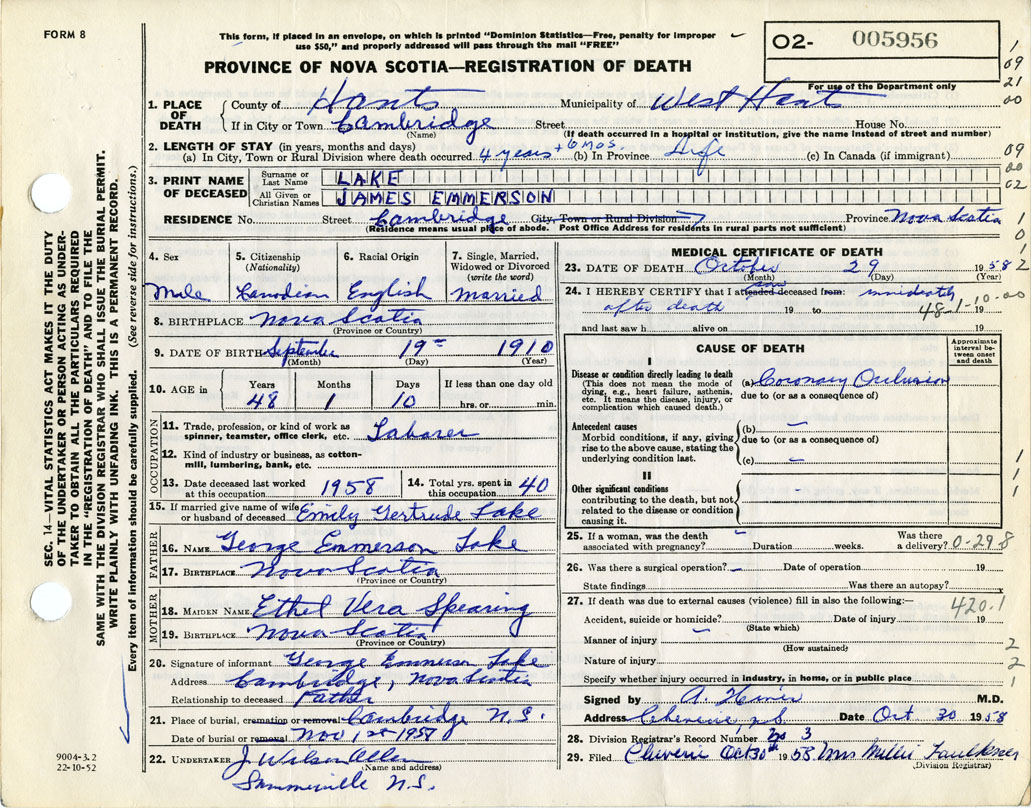 FORM 8
This form, if placed in an envelope, on which is printed "Dominion Statistics—Free, penalty for improper
use $50," and properly addressed will pass through the mail "FREE"
PROVINCE OF NOVA SCOTIA—REGISTRATION OF DEATH
O2- 005956
For use of the Department only
1
09
21
00
09
00
02
1
0
0
2
1. PLACE OF DEATH
County of Hants Municipality of West Hants
If in City or Town Cambridge Street House No.
(Name) (If death occurred in a hospital or institution, give the name instead of street and number)
2. LENGTH OF STAY (in years, months and days)
(a) In City, Town or Rural Division where death occurred 4 years + 6 mos. (b) In Province Life (c) In Canada (if immigrant)
3. PRINT NAME OF DECEASED
Surname or Last Name LAKE
All Given or Christian Names JAMES EMMERSON
RESIDENCE No. Street Cambridge City, Town or Rural Division Province Nova Scotia
(Residence means usual place of abode. Post Office Address for residents in rural parts not sufficient)
4. Sex
Male
5. Citizenship (Nationality)
Canadian
6. Racial Origin
English
7. Single, Married, Widowed or Divorced (write the word)
Married
8. BIRTHPLACE Nova Scotia
(Province or Country)
9. DATE OF BIRTH September 19th 1910
(Month) (Day) (Year)
10. AGE in Years Months Days If less than one day old
48 1 10 hrs. or min.
OCCUPATION
11. Trade, profession, or kind of work as spinner, teamster, office clerk, etc. Laborer
12. Kind of industry or business, as cotton-mill, lumbering, bank, etc.
13. Date deceased last worked at this occupation 1958
14. Total yrs. spent in this occupation 40
15. If married give name of wife or husband of deceased Emily Gertrude Lake
FATHER
16. NAME George Emmerson Lake
17. Birthplace Nova Scotia
(Province or Country)
MOTHER
18. MAIDEN NAME Ethel Vera Spearing
19. BIRTHPLACE Nova Scotia
(Province or Country)
20. Signature of informant George Emmerson Lake
Address Cambridge, Nova Scotia
Relationship to deceased Father
21. Place of burial, cremation or removal Cambridge N.S.
Date of burial or removal Nov 1st 1958
22. UNDERTAKER J Wilson Allen
(Name and address)
Summerville N.S.
MEDICAL CERTIFICATE OF DEATH
23. DATE OF DEATH October 29 1958
(Month) (Day) (Year)
24. I HEREBY CERTIFY that I attended saw deceased from: immediately
after death 19 to 48-1-10-00 19
and last saw h alive on 19
CAUSE OF DEATH
Approximate interval between onset and death
I
Disease or condition directly leading to death
(This does not mean the mode of dying, e.g., heart failure, asthenia, etc. It means the disease, injury, or complication which caused death.)
(a) Coronary Occlusion
due to (or as a consequence of)
Antecedent causes
Morbid conditions, if any, giving rise to the above cause, stating the underlying condition last.
(b) –
due to (or as a consequence of)
(c) –
II
Other significant conditions
contributing to the death, but not related to the disease or condition causing it.
-
1
1
1
25. If a woman, was the death associated with pregnancy? – Duration weeks. Was there a delivery? 0-29.8
26. Was there a surgical operation? – Date of operation 19
State findings Was there an autopsy?
27. If death was due to external causes (violence) fill in also the following:— 420.1
Accident, suicide or homicide? Date of injury 19
(State which)
Manner of injury – 2
(How sustained)
Nature of injury 2
Specify whether injury occurred in industry, in home, or in public place 1
Signed by A. M.D.
Address Cheverie N.S. Date Oct 30 1958
28. Division Registrar's Record Number No 3
29. Filed Cheverie Oct 30th 1958 Mrs Millie Faulkner
(Division Registrar)
SEC. 14—VITAL STATISTICS ACT MAKES IT THE DUTY
OF THE UNDERTAKER OR PERSON ACTING AS UNDER-
TAKER TO OBTAIN ALL THE PARTICULARS REQUIRED
IN THE "REGISTRATION OF DEATH" AND TO FILE THE
SAME WITH THE DIVISION REGISTRAR WHO SHALL ISSUE THE BURIAL PERMIT.
WRITE PLAINLY WITH UNFADING INK. THIS IS A PERMANENT RECORD.
Every item of information should be carefully supplied. (See reverse side for instructions.)
9004-3.2
22-10-52